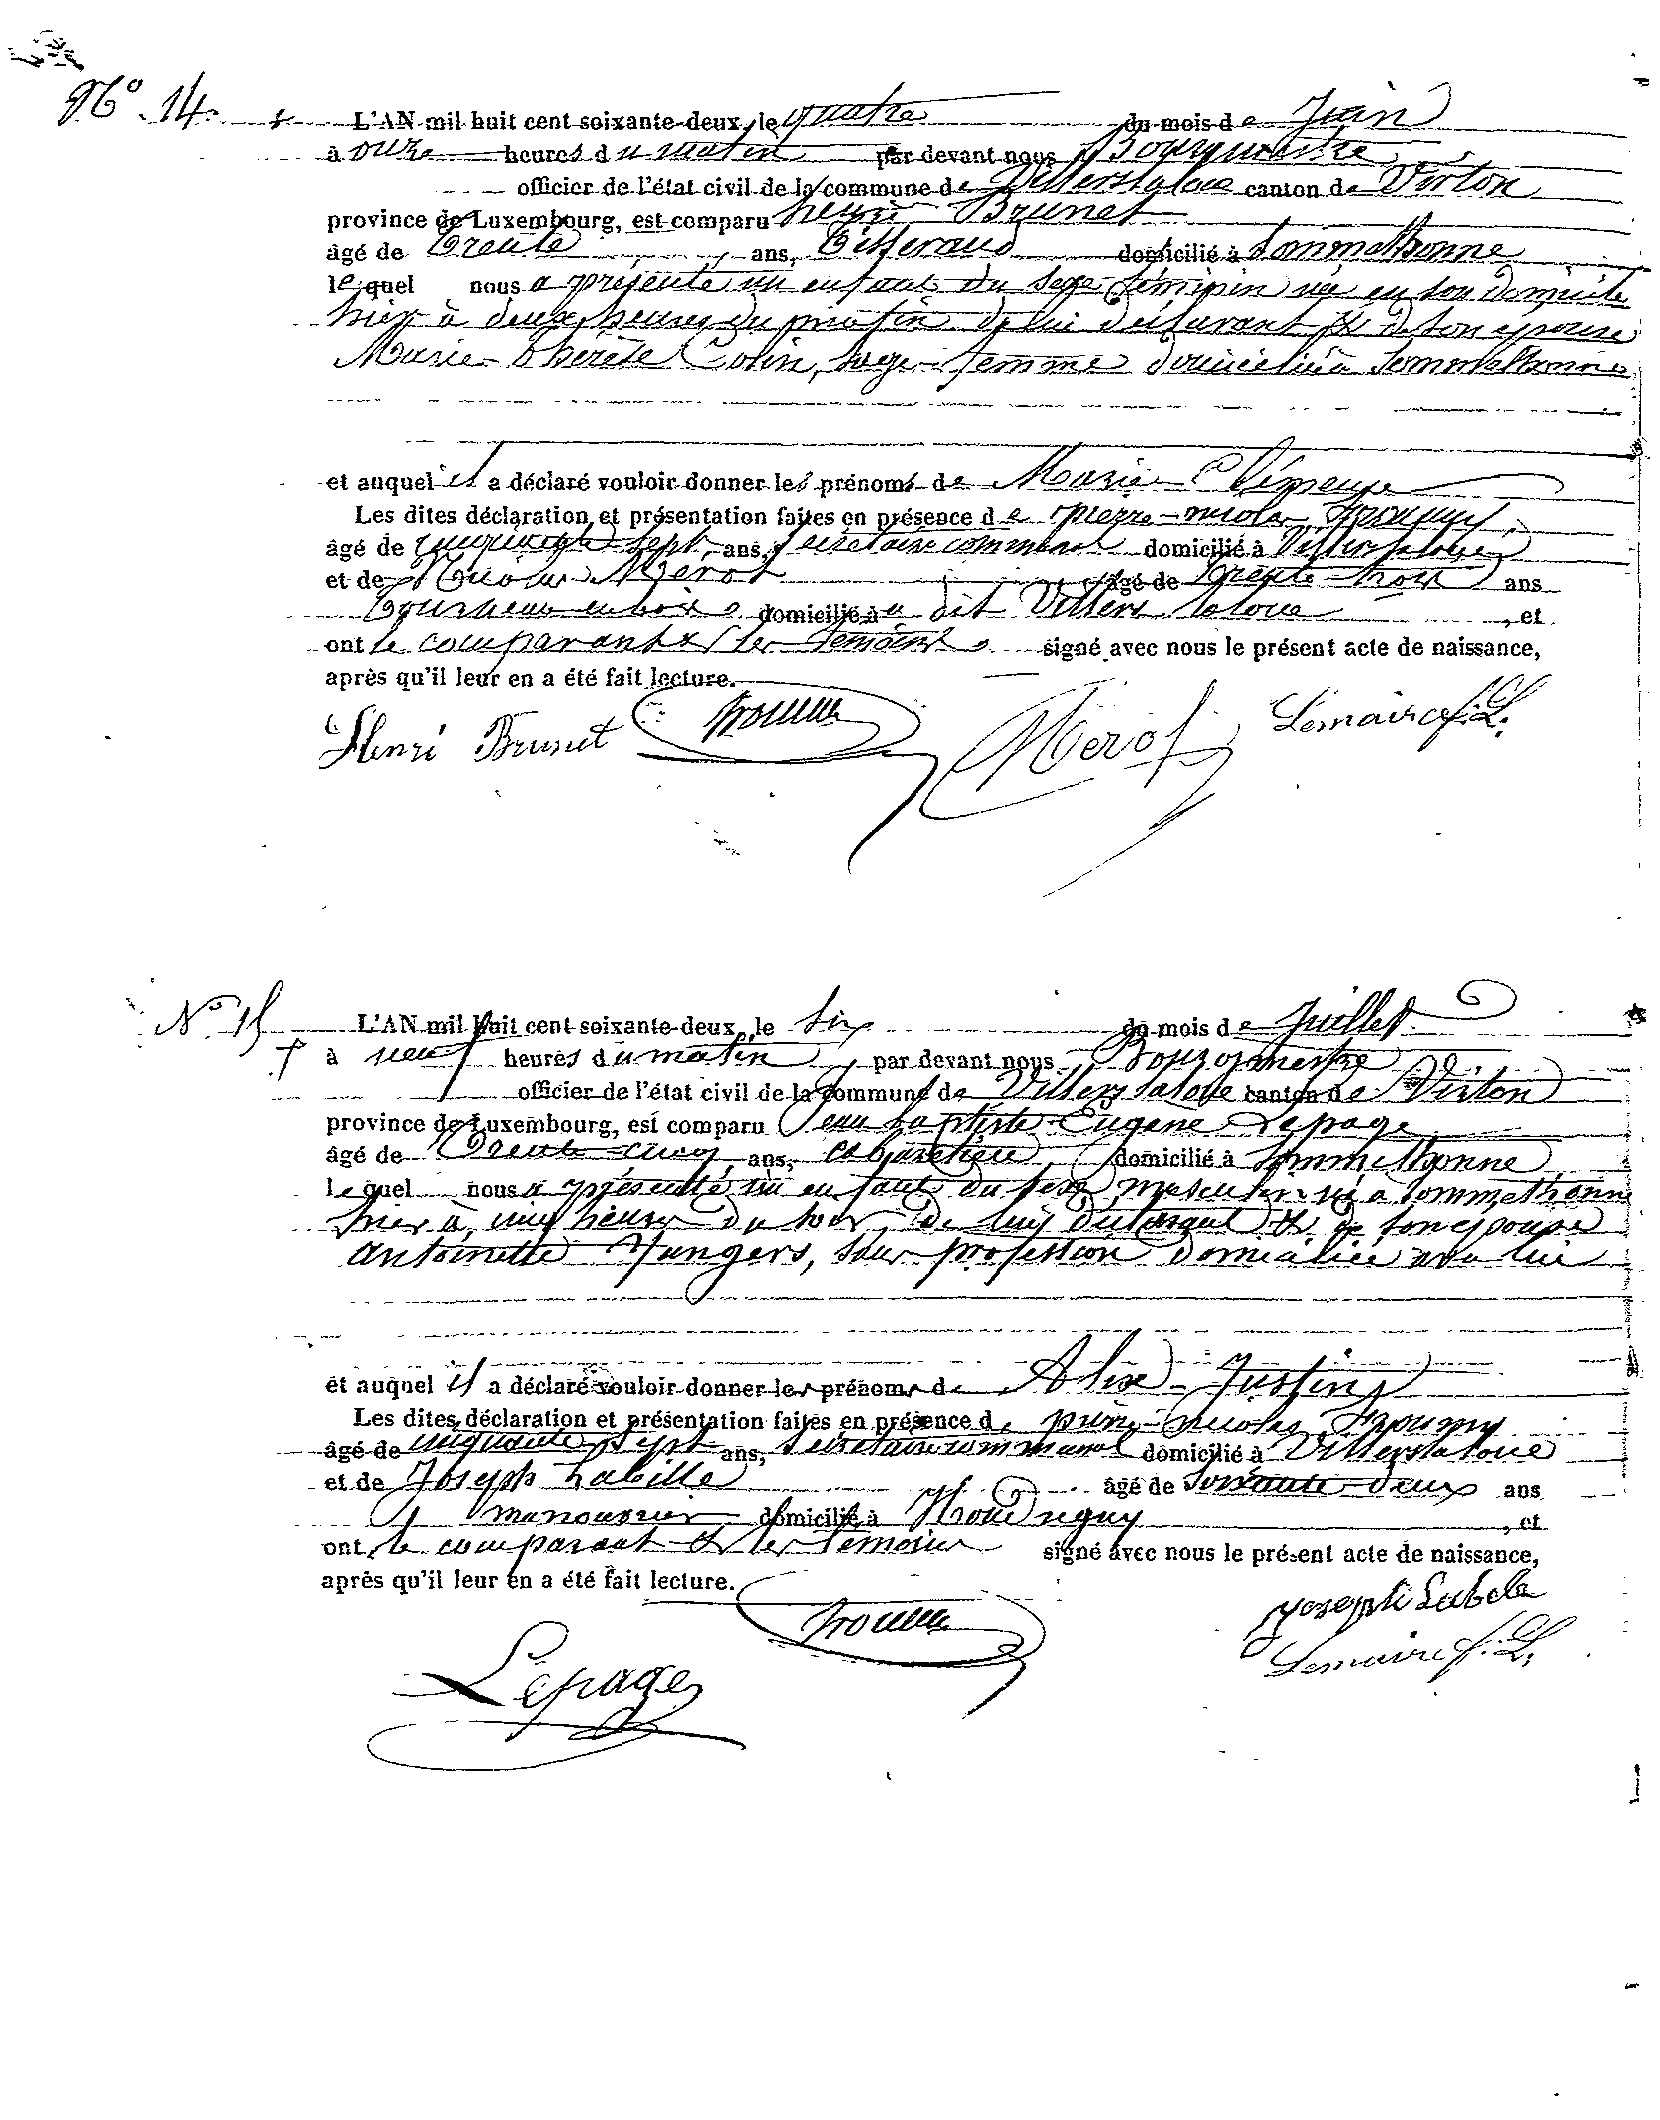 N° 14.
L'AN mil huit cent soixante-deux, le quatre du mois de Juin
à onze heures du matin par devant nous Bourgmestre
officier de l'état civil de la commune de Villerslaloue canton de Virton
province de Luxembourg, est comparu henri Brunet
âgé de trente ans, tisserand domicilié à Sommethonne
lequel nous a présenté un enfant du sexe féminin né en son domicile
hier à deux heures du matin de lui déclarant & de son epouse
Marie-thérèse Colin, sage-femme domiciliée à Sommethonne
et auquel il a déclaré vouloir donner les prénoms de Marie
Les dites déclaration et présentation faites en présence de pierre-nicolas
âgé de cinquante-sept ans, secrétaire communal domicilié à Villerslaloue
et de Nicolas Mérot âgé de trente-trois ans
domicilié à au dit Villers laloue , et
ont le comparant & les témoins signé avec nous le présent acte de naissance,
après qu'il leur en a été fait lecture.
Henri Brunet Mérot Lemaire f. L.
N° 15
L'AN mil huit cent soixante-deux, le Six du mois de Juillet
à neuf heures du matin, par devant nous Bourgmestre
officier de l'état civil de la commune de Villers laloue canton de Virton
province de Luxembourg, est comparu Jean baptiste Eugène Lepage
âgé de trente-cinq ans, cabaretier domicilié à Sommethonne
lequel nous a présenté un enfant du sexe masculin né à Sommethonne
hier à cinq heures du soir, de lui déclarant & de son epouse
antoinette Yungers, sans profession domiciliée avec lui
et auquel il a déclaré vouloir donner les prénoms de Alix-Justin
Les dites déclaration et présentation faites en présence de pierre-nicolas
âgé de cinquante sept ans, secrétaire communal domicilié à Villerslaloue
et de Joseph Labille âgé de soixante-deux ans
manouvrier domicilié à Houdrigny , et
ont le comparant & les témoins signé avec nous le présent acte de naissance,
après qu'il leur en a été fait lecture.
Joseph
Lepage Lemaire f. L.